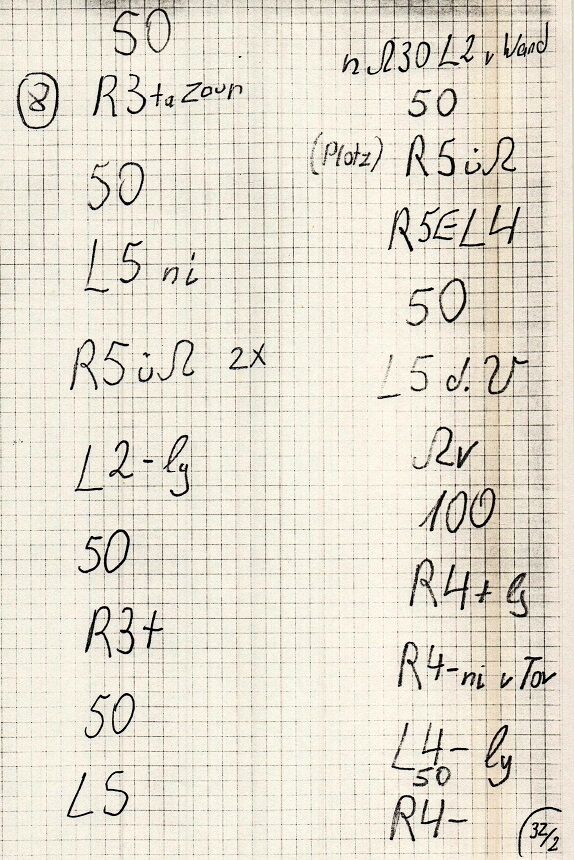 50
8 R3+a Zaun
50
L5 ni
R5üΩ 2x
L2- lg
50
R3+
50
L5
nΩ30 L2 v Wand
50
(Platz) R5üΩ
R5EL4
50
L5 d.
Ωv
100
R4+ lg
R4- ni v Tor
L4- lg
50
R4-
32/2